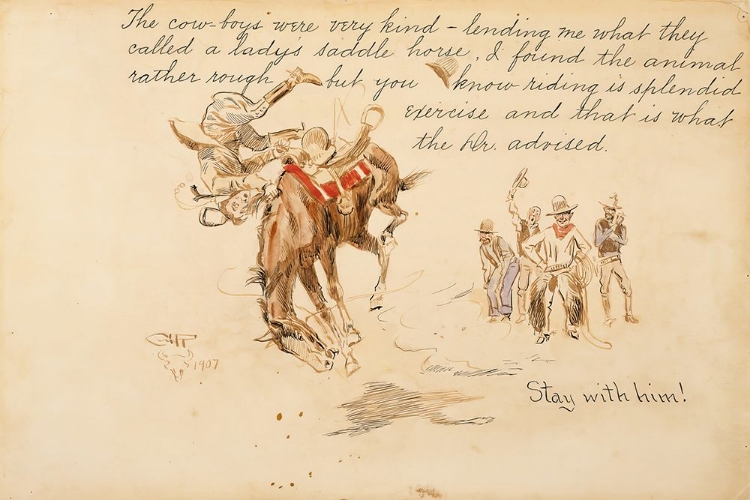 The cow-boys were very kind - lending me what they
called a ladys saddle horse, I found the animal
rather rough but you know riding is splendid
exercise and that is what
the Dr. advised.
Stay with him!
1907